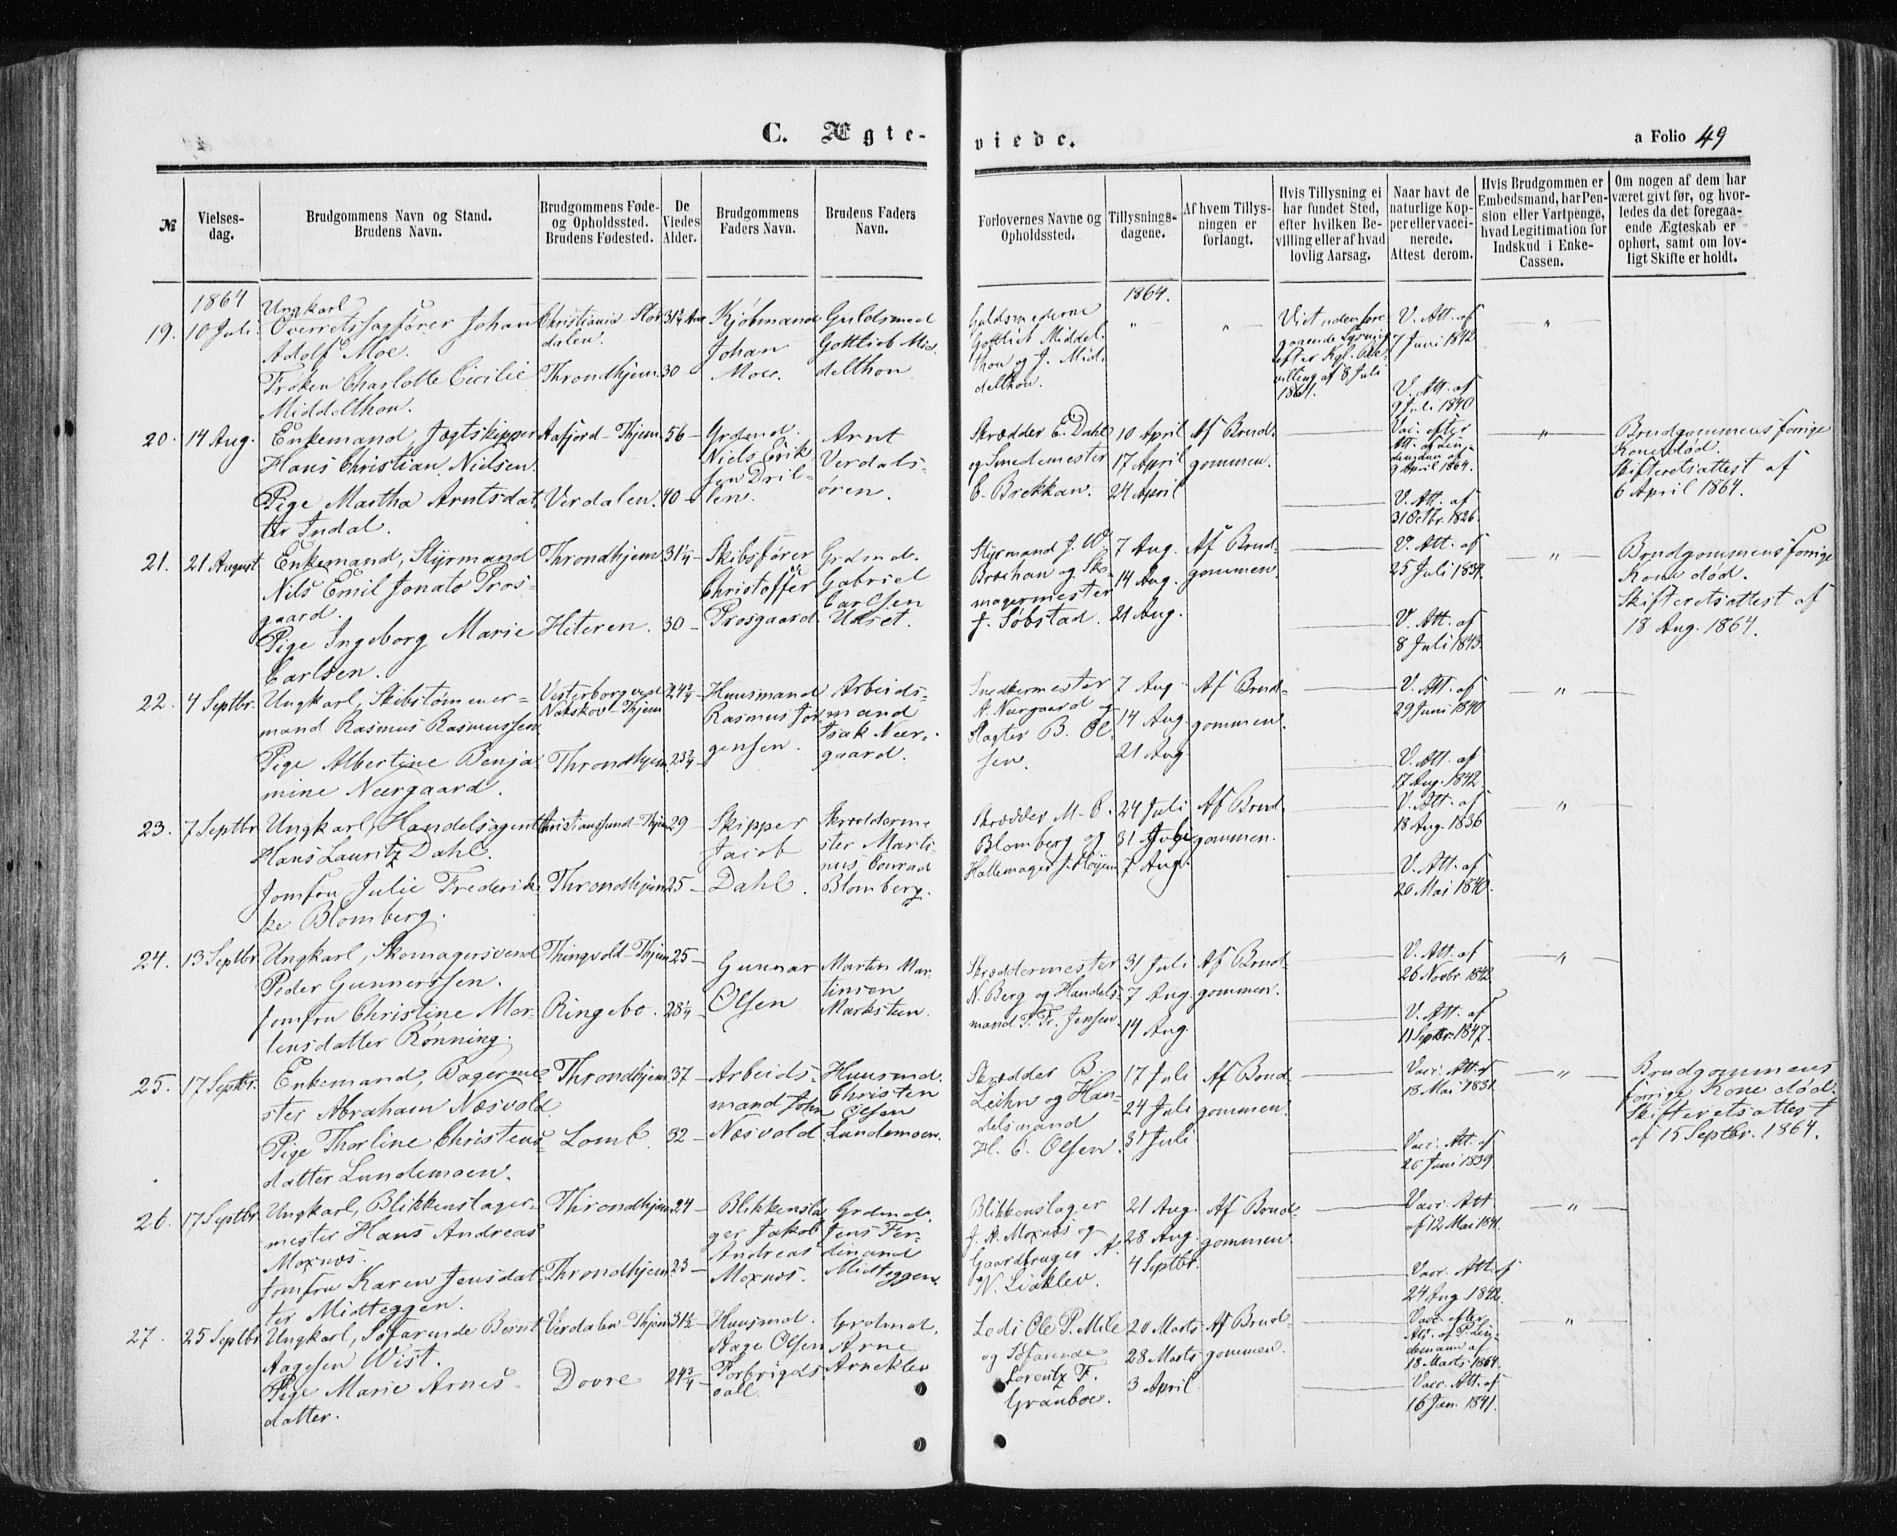 C. Ægte-
viede.
a Folio 49
№
Vielses-
dag.
Brudgommens Navn og Stand.
Brudens Navn.
Brudgommens Føde-
og Opholdssted.
Brudens Fødested.
De
Viedes
Alder.
Brudgommens
Faders Navn.
Brudens Faders
Navn.
Forlovernes Navne og
Opholdssted.
Tillysnings-
dagene.
Af hvem Tillys-
ningen er
forlangt.
Hvis Tillysning ei
har fundet Sted,
efter hvilken Be-
villing eller af hvad
lovlig Aarsag.
Naar havt de
naturlige Kop-
per eller vacci-
nerede.
Attest derom.
Hvis Brudgommen er
Embedsmand, har Pen-
sion eller Vartpenge,
hvad Legitimation for
Indskud i Enke-
Cassen.
Om nogen af dem har
været givt før, og hvor-
ledes da det foregaa-
ende Ægteskab er
ophørt, samt om lov-
ligt Skifte er holdt.
1864
19.
10 Juli.
Ungkarl
Overretssagfører Johan
Adolf Moe.
Frøken Charlotte Cecilie
Middelthon.
Christiania
dalen.
Throndhjem
30
Kjøbmand
Johan
Moe.
Guldsmed
Gottlieb Mid-
delthon
Guldsmederne
Gottlieb Middel-
thon og J. Mid-
delthon.
1864.
" "
Viet uden fore-
gaaende Lysning
efter Kgl. Be-
villing af 8 Juli
1864.
V. Att. af
7 Juni 1842
V. Att. af
9 Juli 1840
"
20.
14 Aug.
Enkemand, Jægtskipper
Hans Christian Nielsen.
Pige Martha Arntsdat-
ter Indal.
Aafjord - Thjem
Verdalen
56
40
Grdmd.
Niels Erik-
sen Dril-
len.
Arnt
Verdals-
øren.
Skrædder E. Dahl
og Smedemester
C. Brekkan.
10 April
17 April
24 April
Af Brud-
gommen.
Vac. efter
Att. af Lin-
demann af
9 April 1864.
V. Att. af
31 Octbr. 1826.
"
Brudgommens forrige
Kone død.
Skifteretsattest af
6 April 1864.
21.
21 August
Enkemand, Styrmand
Nils Emil Jonato Pros-
gaard.
Pige Ingeborg Marie
Carlsen.
Throndhjem
Hiteren.
31¼
30
Skibsfører
Christoffer
Prosgaard
Grdmd.
Gabriel
Carlsen
Udret.
Styrmand J. W.
Brochan og Sko-
magermester
J. Søbstad.
7 Aug.
14 Aug.
21 Aug.
Af Brud-
gommen.
V. Att. af
25 Juli 1834.
V. Att. af
8 Juli 1843.
"
Brudgommens forrige
Kone død.
Skifteretsattest af
18 Aug. 1864.
22.
4 Septbr.
Ungkarl, Skibstømmer-
mand Rasmus Rasmussen
Pige Albertine Benja-
mine Neergaard.
Vesterborg ved
Nakskov - Thjem
Throndhjem
24¾
23¼
Huusmand
Rasmus Jør-
gensen.
Arbeids-
mand
Isak Neer-
gaard.
Snedkermester
A. Neergaard og
Slagter B. Ol-
sen.
7 Aug.
14 Aug.
21 Aug
Af Brud-
gommen.
V. Att. af
29 Juni 1840
V. Att. af
17 Aug. 1842.
"
23.
7 Septbr
Ungkarl, Handelsagent
Hans Lauritz Dahl.
Jomfru Julie Frederik-
ke Blomberg.
Christianssund - Thjem
Throndhjem
29
25
Skipper
Jacob
Dahl.
Skræderme-
ster Marti-
nus Conrad
Blomberg.
Skrædder M. C.
Blomberg og
Hattemager J. Høyem
24 Juli
31 Juli
7 Aug.
Af Brud-
gommen.
V. Att. af
18 Aug. 1836
V. Att. af
20 Mai 1840.
"
24.
13 Septbr.
Ungkarl, Skomagersvend
Peder Gunnerssen.
Jomfru Christine Mor-
tensdatter Rønning.
Thingvold - Thjem
Ringebo.
25
28¼
Gunnar
Olsen
Martin Mar-
tinsen
Marksteen.
Skræddermester
N. Berg og Handels-
mand P. Fr. Jensen
31 Juli
7 Aug.
14 Aug.
Af Brud-
gommen.
V. Att. af
26 Novbr. 1842.
V. Att. af
11 Septbr. 1847.
"
25.
17 Septbr.
Enkemand, Bagerme-
ster Abraham Næsvold.
Pige Thorline Christens-
datter Lundemoen.
Throndhjem
Lomb.
37
32
Arbeids-
mand John
Næsvold
Huusmd.
Christen
Olsen
Lundemoen.
Skrædder B.
Leihn og Han-
delsmand
H. C. Olsen.
17 Juli
24 Juli
31 Juli
Af Brud-
gommen.
Vacc. Att. af
18 Mai 1831.
Vacc. Att. af
20 Juni 1839.
"
Brudgommens
forrige Kone død.
Skifteretsattest
af 15 Septbr. 1864.
26.
17 Septbr.
Ungkarl, Blikkenslager-
mester Hans Andreas
Moxnæs.
Jomfru Karen Jensdat-
ter Midteggen.
Throndhjem
Throndhjem
24
23
Blikkensla-
ger Jakob
Andreas
Moxnæs.
Grdmd.
Jens Fer-
dinand
Midteggen.
Blikkenslager
J. A. Moxnæs og
Gaardbruger A.
N. Liaklev.
21 Aug.
28 Aug.
4 Septbr.
Af Brud-
gommen.
Vacc. Att.
af 12 Mai 1841.
Vacc. Att. af
24 Aug 1842.
"
27.
25 Septbr
Ungkarl, Søfarende Bernt
Aagesen Wist.
Pige Marie Arnes-
datter.
Verdalen Thjem
Dovre
31½
24¾
Huusmd.
Aage Olsen
Forbrigds-
vall
Grdmd.
Arne
Arneklev
Lods Ole P. Mile
og Søfarende
Lorentz F.
Granboe.
20 Marts
28 Marts
3 April
Af Brud-
gommen.
Vacc. efter
Att. af P. Lin-
demann af
18 Marts 1864.
Vacc. Att. af
16 Jan. 1841.
"